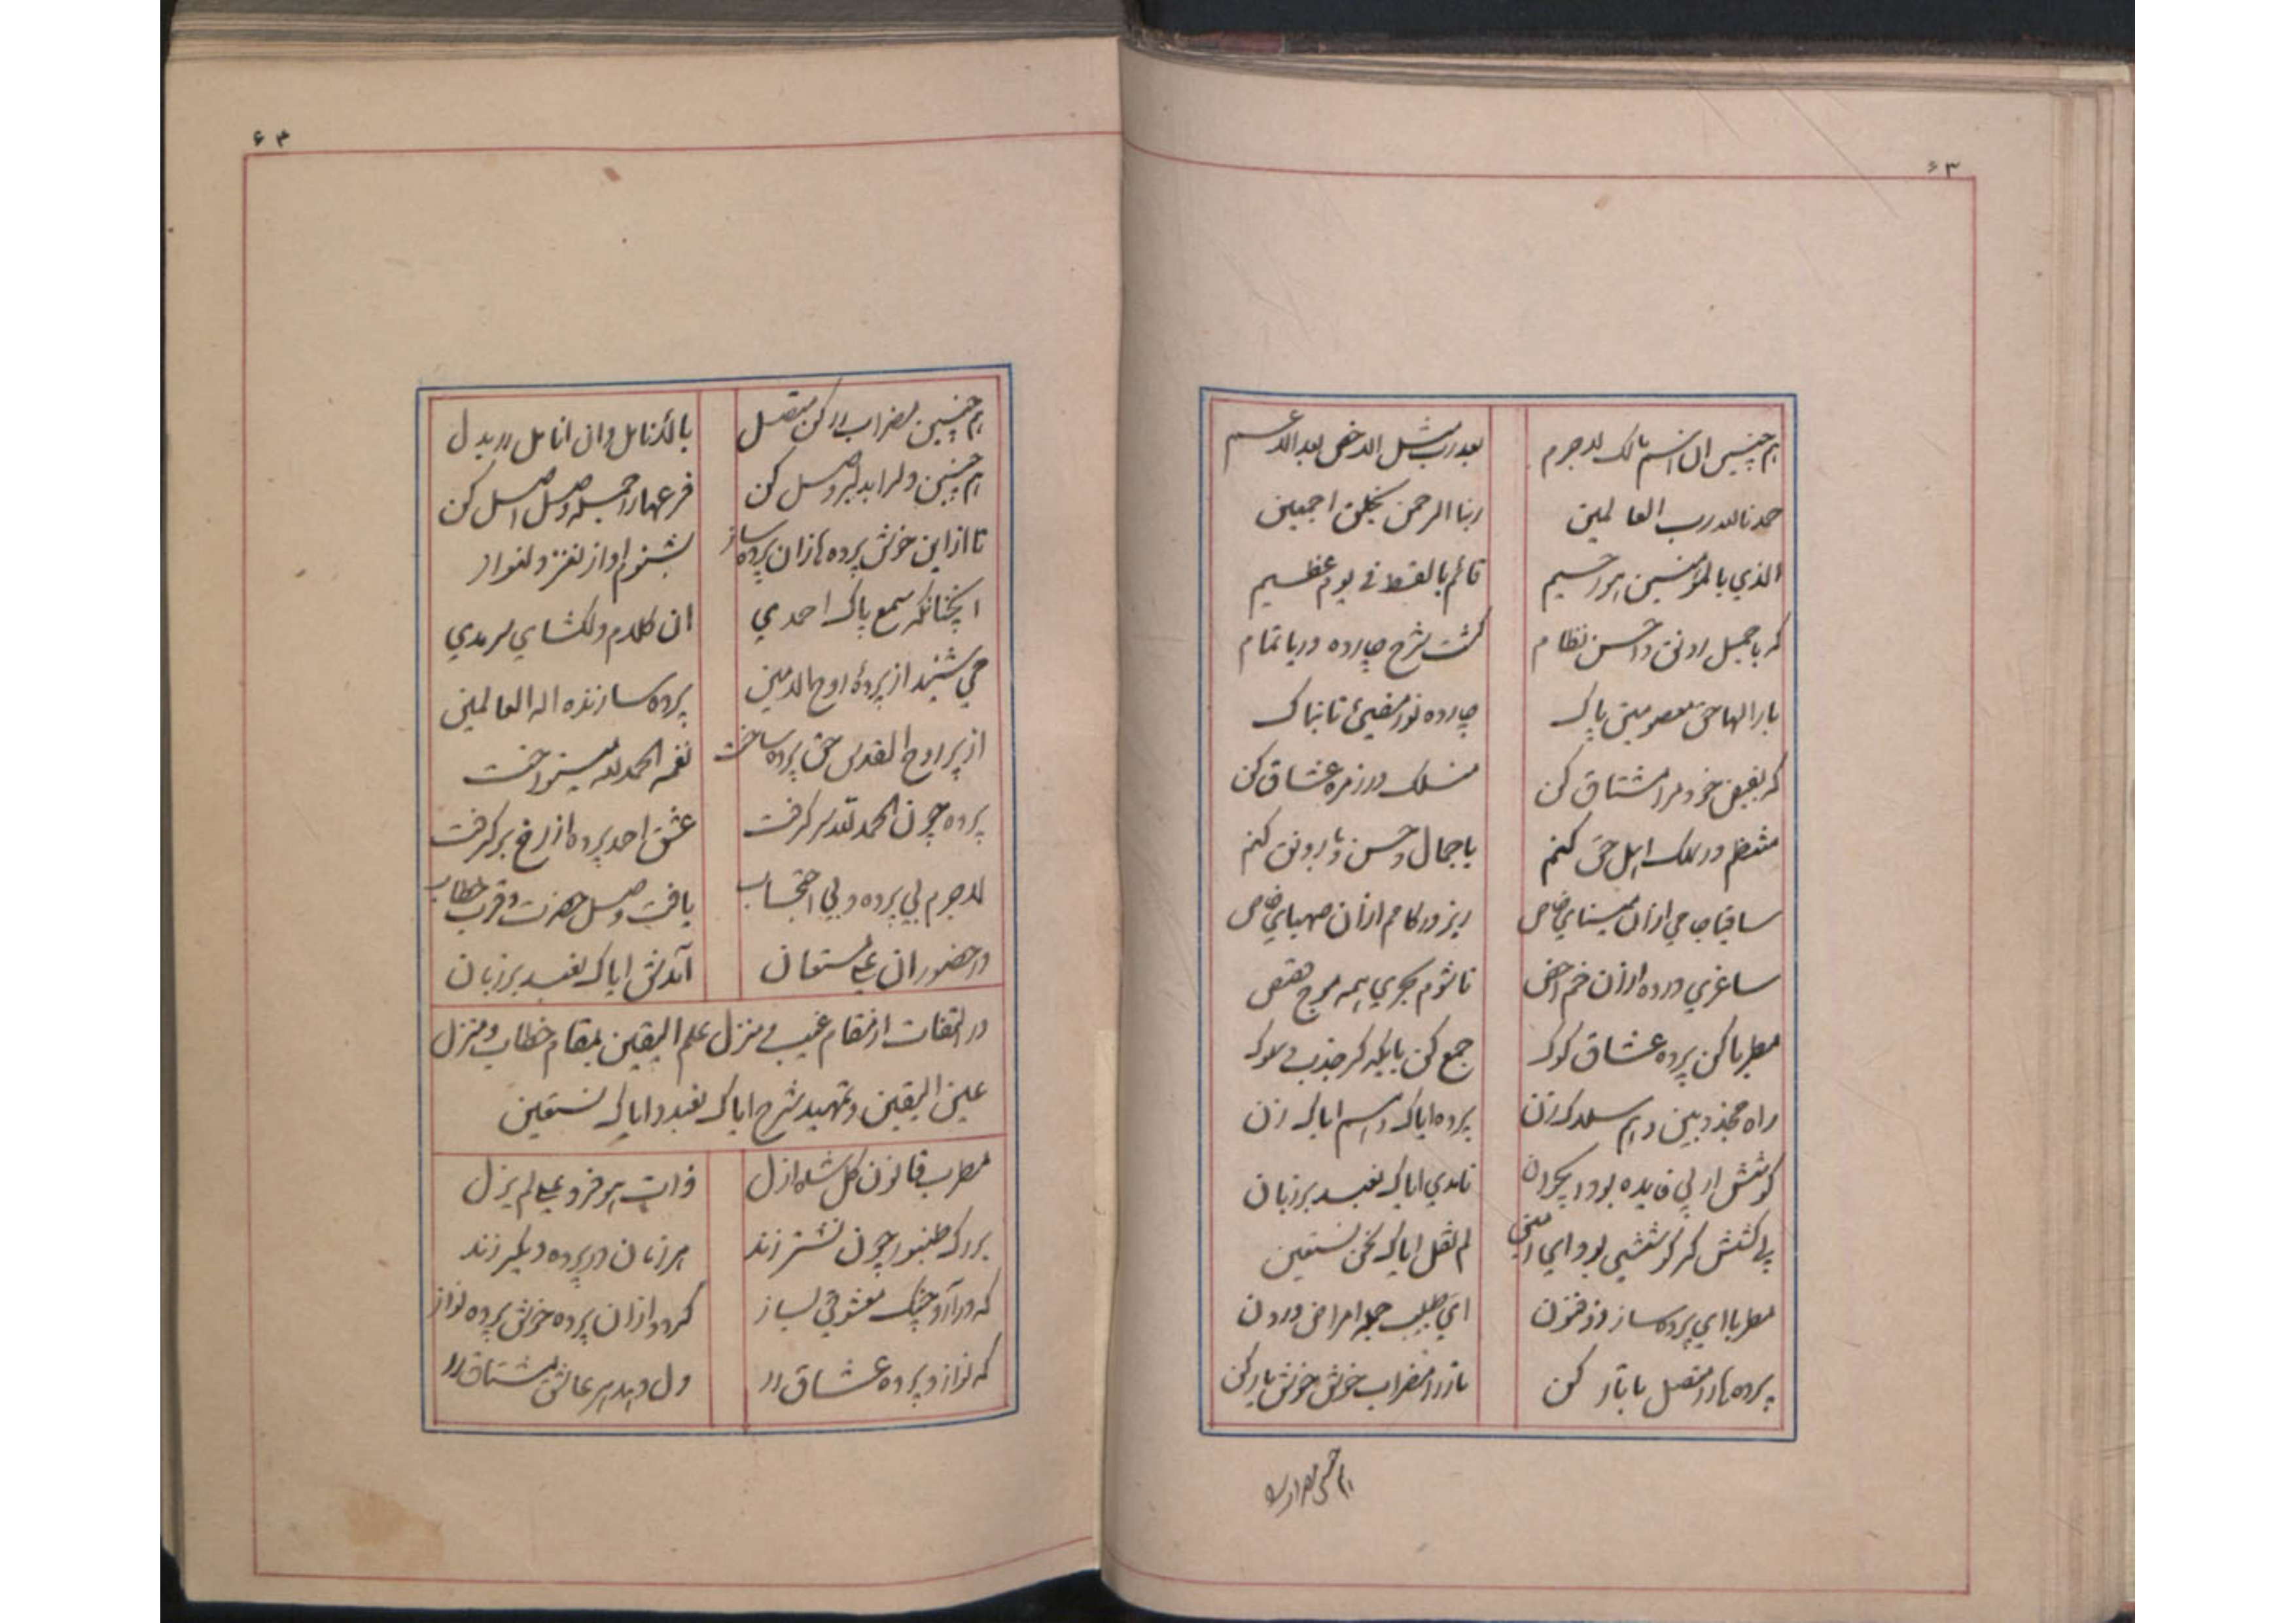 ۶۳
هم چنین ان اسم مالک لاجرم بعد رب مثل الاخص بعد الاعم
حمدنا لله رب العالمین ربنا الرحمن بخلق اجمعین
الذی بالمؤمنین هو رحیم قائم بالقسط فی یوم عظیم
کر با جمیل رونق و احسن نظام گشت شرح چارده دریا تمام
بار الها حق معصومین پاک چارده نور مضیئ تابناک
کر بفیض خود مرا مشتاق کن منسلک در زمره عشاق کن
منتظم در سلک اهل حق کنم با جمال و حسن و با رونق کنم
ساقیا جامی ازان مینای خاص ریز در کامم ازان صهبای خاص
ساغری در ده ازان خم اخص تا شوم بحری همه موج قصص
مطربا کن پرده عشاق کوک جمع کن با یکدگر جذب و سلوک
راه مجذوبین و هم سلاک زن پرده ایاک و اسم ایاک زن
کوشش ار بی فایده بود ای جوان نامدی ایاک نعبد بر زبان
بی کشش گر کوششی بود ای امین لم نقل ایاک نحن نستعین
مطربا ای پرده ساز ذو فنون ای طبیب جمله امراض درون
پرده ها را متصل با تار کن تار را مضراب خوش خوش یار کن
هم چنین مضراب را
۶۴
هم چنین مضراب را کن متصل با انامل وان انامل را بدل
هم چنین دل را بدلبر وصل کن فرعها را جمله وصل اصل کن
تا ازاین خوش پرده ها زان پرده ساز بشنوم اواز نغز دلنواز
انچنانکه سمع پاک احمدی ان کلام دلگشای سرمدی
می شنید از پردهٔ روح الامین پرده سازنده اله العالمین
از پر روح القدس حق پرده ساخت نغمه الحمد لله مینواخت
پرده چون الحمد لله سر گرفت عشق احمد پرده از رخ بر گرفت
لاجرم بی پرده و بی احتجاب یافت وصل حضرت و قرب خطاب
در حضور ان علی مستعان آمدش ایاک نعبد بر زبان
در التفات از مقام غیب و منزل علم الیقین بمقام خطاب و منزل
عین الیقین و تمهید شرح ایاک نعبد و ایاک نستعین
مطرب قانون کل شاه ازل ذات هو فرد علی لم یزل
بر رگ طنبور چون نشتر زند هر زمان در پرده دیگر زند
که در آرد چنگ معشوقی بساز گردد ازان پرده خوش پرده نواز
که نوازد پرده عشاق را دل دهد هر عاشق مشتاق را